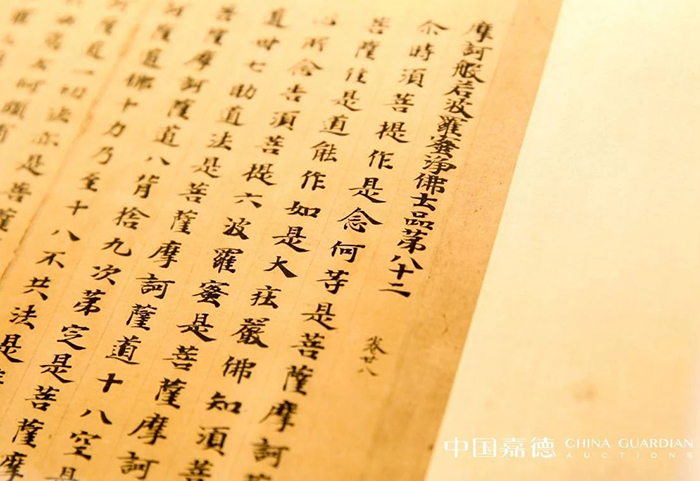 摩訶般若波羅蜜淨佛士品苐八十二 卷廿八
尒時須菩提作是念何等是菩薩摩訶薩
菩薩住是道能作如是大莊嚴佛知須菩
心所念告須菩提六波羅蜜是菩薩摩訶
道卅七助道法是菩薩摩訶薩道十八空是
菩薩摩訶薩道八背捨九次苐定是菩薩摩
訶薩道佛十力乃至十八不共法是
道一切法亦是菩薩
中国嘉德 CHINA GUARDIAN
AUCTIONS